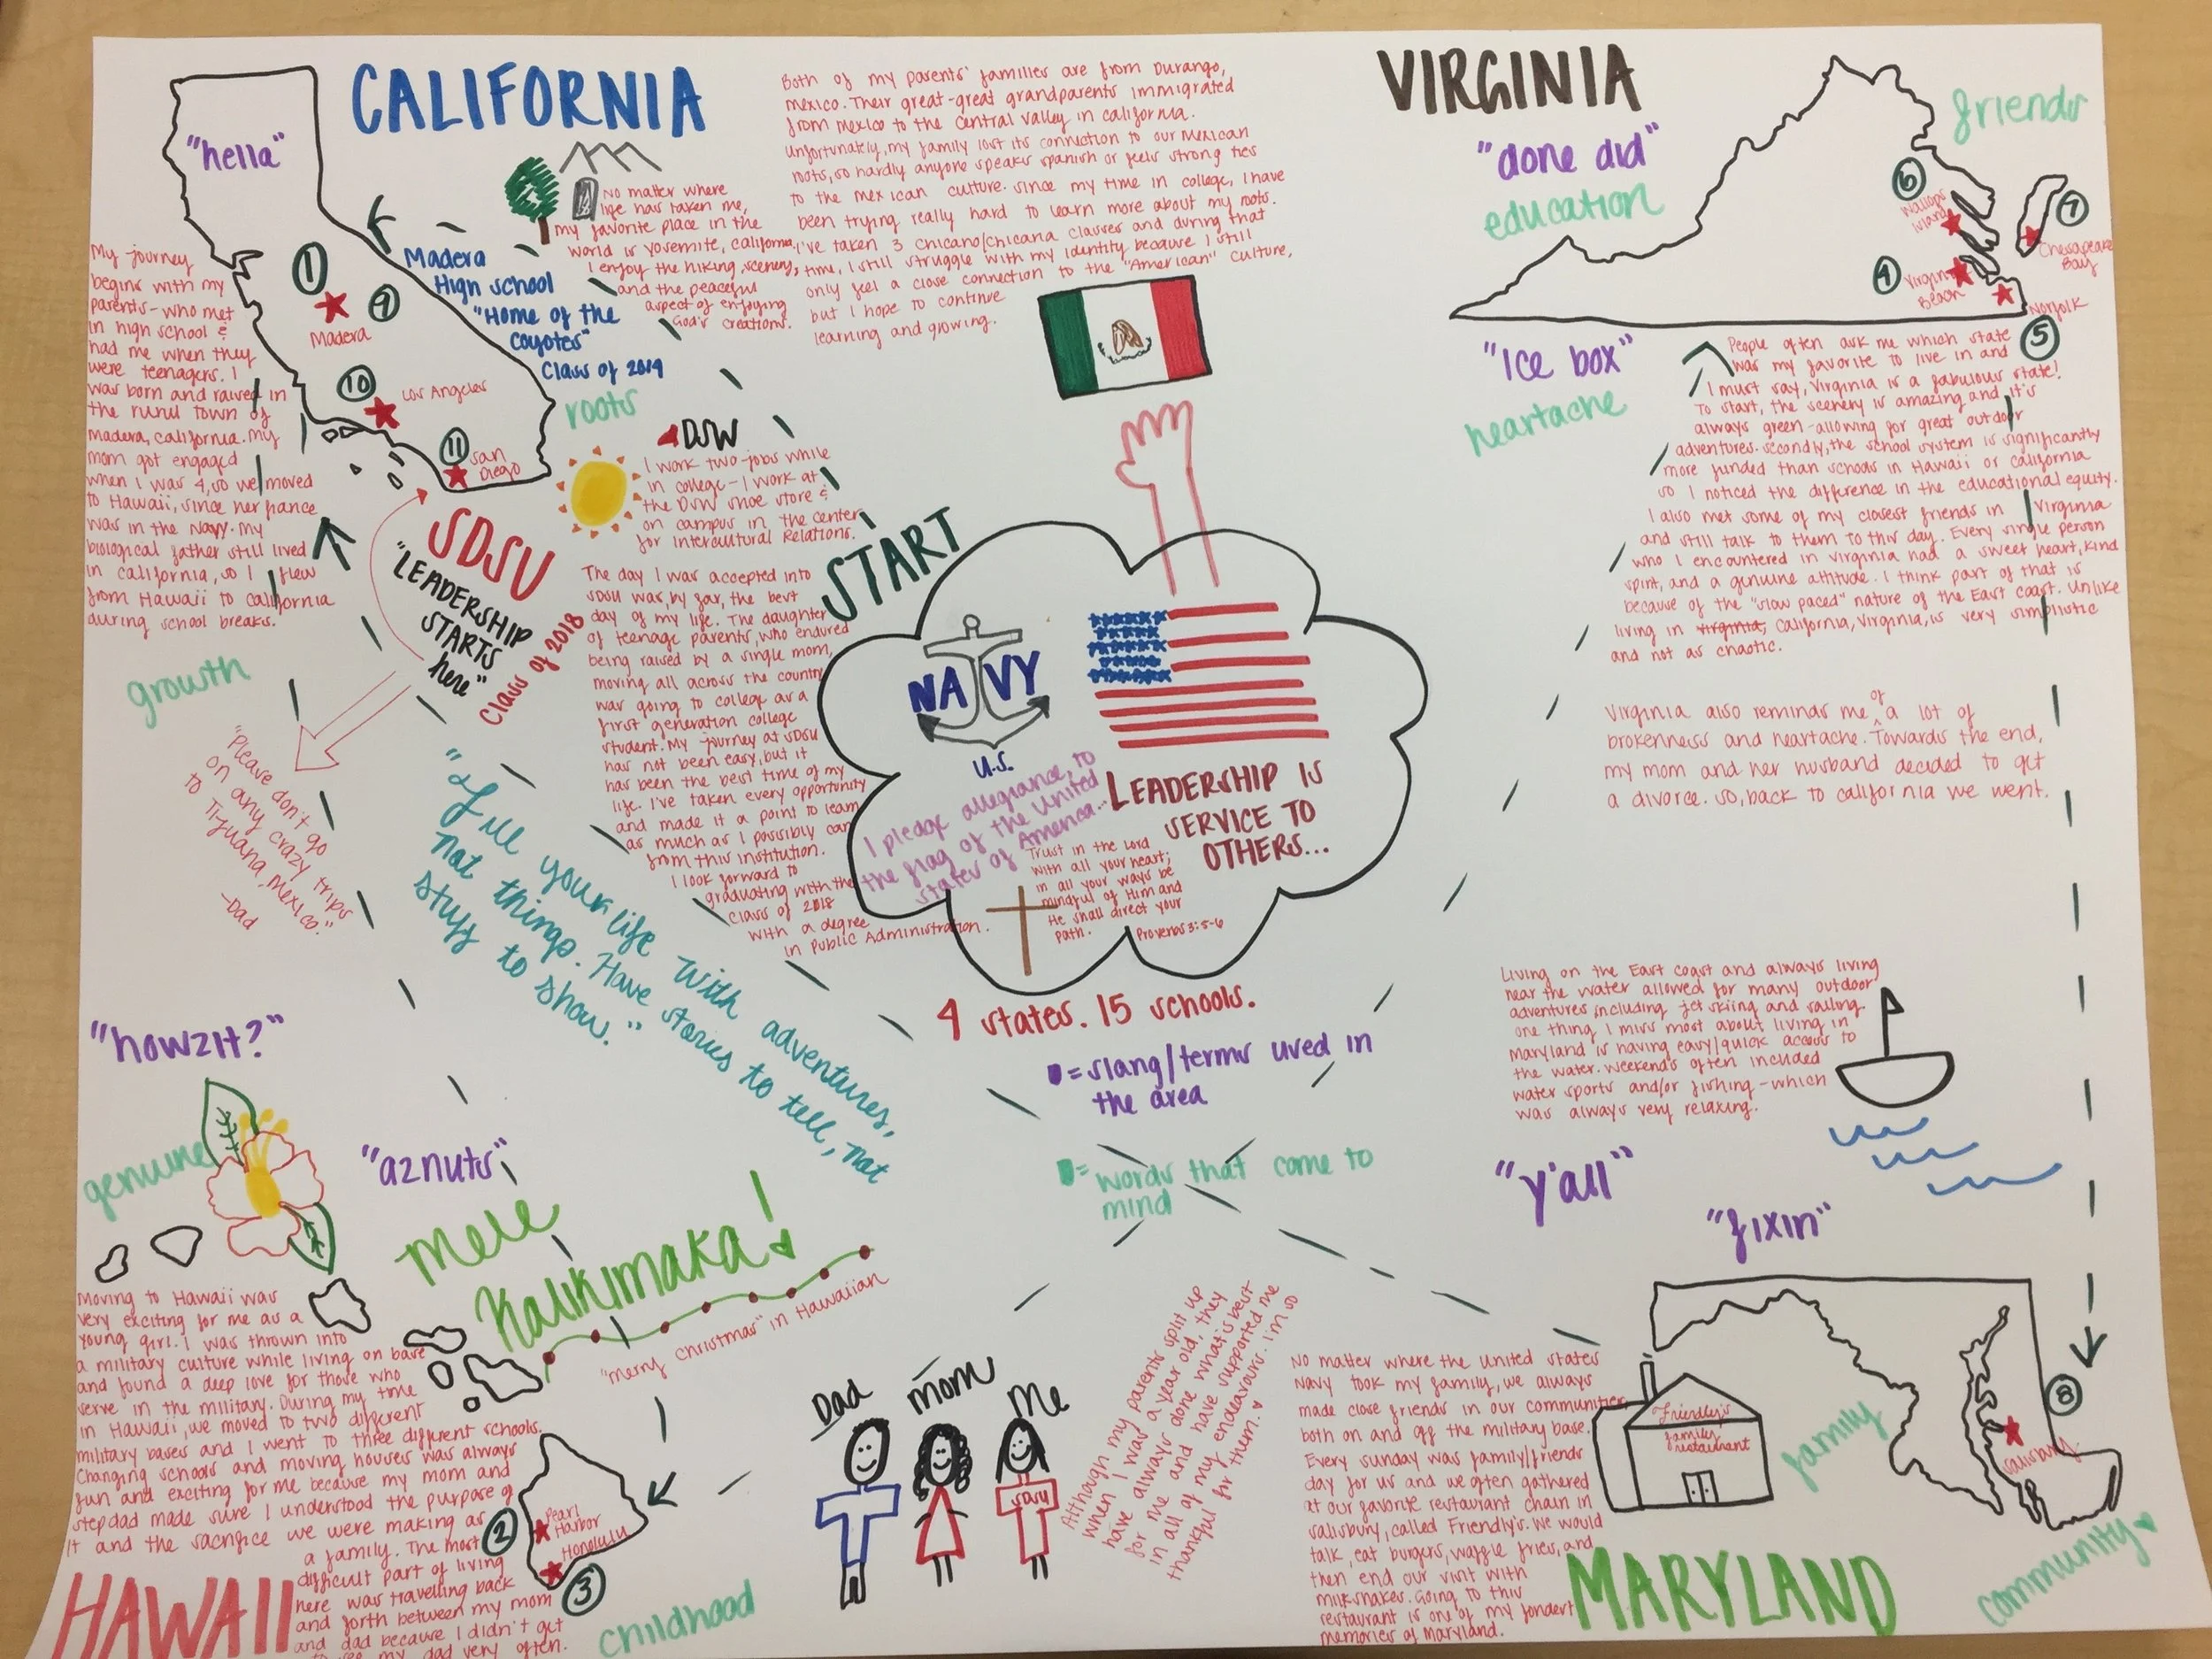 CALIFORNIA
"hella"
1
Madera
9
10
Los Angeles
11
San
Diego
Madera
High school
"Home of the
Coyotes"
Class of 2014
roots
No matter where
life has taken me,
my favorite place in the
world is Yosemite, California,
I enjoy the hiking, scenery,
and the peaceful
aspect of enjoying
God's creations.
Both of my parents' families are from Durango,
Mexico. Their great-great grandparents immigrated
from Mexico to the Central Valley in California.
Unfortunately, my family lost its connection to our Mexican
roots, so hardly anyone speaks spanish or feels strong ties
to the Mexican culture. Since my time in college, I have
been trying really hard to learn more about my roots.
I've taken 3 Chicano/Chicana classes and during that
time, I still struggle with my identity because I still
only feel a close connection to the "American" culture,
but I hope to continue
learning and growing.
My journey
begins with my
parents - who met
in high school &
had me when they
were teenagers. I
was born and raised in
the rural town of
Madera, California. My
mom got engaged
when I was 4, so we moved
to Hawaii, since her fiance
was in the Navy. My
biological father still lived
in California, so I flew
from Hawaii to California
during school breaks.
growth
SDSU
"LEADERSHIP
STARTS
here"
Class of 2018
"Please don't go
on any crazy trips
to Tijuana, Mexico."
-Dad
DSW
I work two-jobs while
in college - I work at
the DSW shoe store &
on campus in the Center
for Intercultural Relations.
The day I was accepted into
SDSU was, by far, the best
day of my life. The daughter
of teenage parents, who endured
being raised by a single mom,
moving all across the country
was going to college as a
first generation college
student. My journey at SDSU
has not been easy, but it
has been the best time of my
life. I've taken every opportunity
and made it a point to learn
as much as I possibly can
from this institution.
I look forward to
graduating with the
class of 2018
with a degree
in Public Administration.
START
"Fill your life with adventures,
not things. Have stories to tell, not
stuff to show."
NAVY
U.S.
I pledge allegiance to
the flag of the United
States of America...
LEADERSHIP IS
SERVICE TO
OTHERS...
Trust in the Lord
with all your heart;
in all your ways be
mindful of Him and
He shall direct your
path.
Proverbs 3:5-6
4 states. 15 schools.
= slang/terms used in
the area
= words that come to
mind
VIRGINIA
"done did"
education
friends
6
Wallops
Island
7
Chesapeake
Bay
4
Virginia
Beach
Norfolk
5
"Ice box"
heartache
People often ask me which state
was my favorite to live in and
I must say, Virginia is a fabulous state!
To start, the scenery is amazing and it's
always green - allowing for great outdoor
adventures. Secondly, the school system is significantly
more funded than schools in Hawaii or California
so I noticed the difference in the educational equity.
I also met some of my closest friends in Virginia
and still talk to them to this day. Every single person
who I encountered in Virginia had a sweet heart, kind
spirit, and a genuine attitude. I think part of that is
because of the "slow paced" nature of the East coast. Unlike
living in Virginia, California, Virginia, is very simplistic
and not as chaotic.
Virginia also reminds me of a lot of
brokenness and heartache. Towards the end,
my mom and her husband decided to get
a divorce. So, back to California we went.
Living on the East coast and always living
near the water allowed for many outdoor
adventures including jet skiing and sailing.
One thing I miss most about living in
Maryland is having easy/quick access to
the water. Weekends often included
water sports and/or fishing - which
was always very relaxing.
"y'all"
"fixin"
"howzit?"
genuine
"aznuts"
Mele
Kalikimaka!
"Merry Christmas" in Hawaiian
Moving to Hawaii was
very exciting for me as a
young girl. I was thrown into
a military culture while living on base
and found a deep love for those who
serve in the military. During my time
in Hawaii, we moved to two different
military bases and I went to three different schools.
Changing schools and moving houses was always
fun and exciting for me because my mom and
stepdad made sure I understood the purpose of
it and the sacrifice we were making as
a family. The most
difficult part of living
here was travelling back
and forth between my mom
and dad because I didn't get
to see my dad very often.
HAWAII
2
Pearl
Harbor
Honolulu
3
childhood
Dad
Mom
Me
SDSU
Although my parents split up
when I was a year old, they
have always done what's best
for me and have supported me
in all of my endeavours. I'm so
thankful for them.
No matter where the United States
Navy took my family, we always
made close friends in our communities
both on and off the military base.
Every Sunday was family/friends
day for us and we often gathered
at our favorite restaurant chain in
Salisbury, called Friendly's. We would
talk, eat burgers, waffle fries, and
then end our visit with
milkshakes. Going to this
restaurant is one of my fondest
memories of Maryland.
Friendly's
family
restaurant
family
8
Salisbury
MARYLAND
community